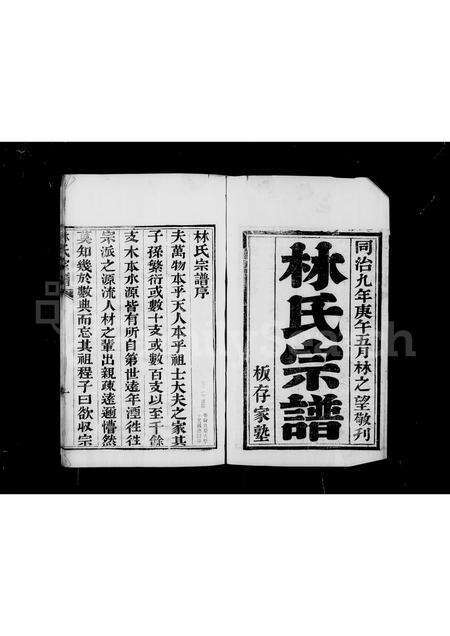 同治九年庚午五月林之望敬刊
林氏宗譜
板存家塾
林氏宗譜序
夫萬物本乎天人本乎祖士大夫之家其
子孫繁衍或數十支或數百支以至千餘
支木本水源皆有所自第世遠年湮往往
宗派之源流人材之輩出親疏遠邇懵然
莫知幾於數典而忘其祖程子曰欲収宗
林氏宗譜